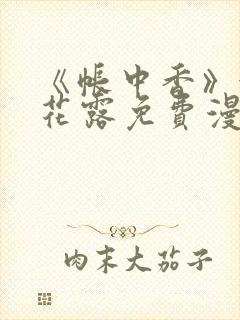 《帐中香》
花露免费漫
肉末大茄子